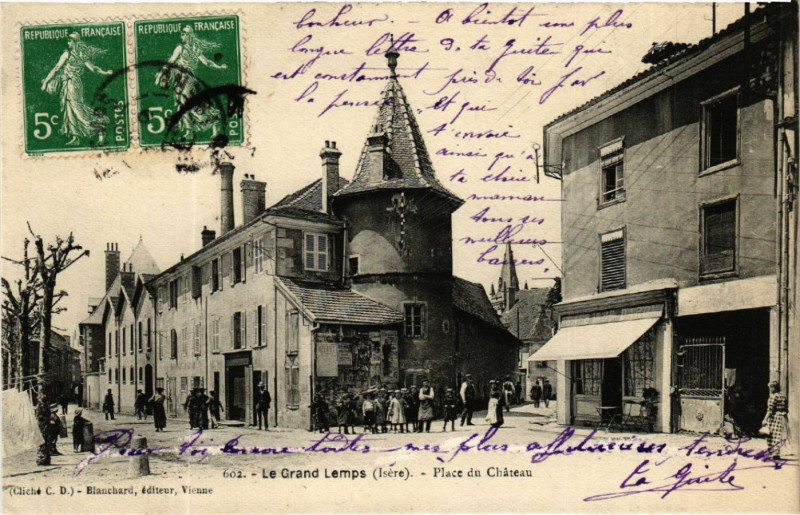 REPUBLIQUE FRANÇAISE
5c POSTES
REPUBLIQUE FRANÇAISE
5c POSTES
bonheur. - A bientôt une plus
longue lettre de ta Guite qui
est constamment près de toi par
la pensée et qui
t'envoie
ainsi qu'à
ta chère
maman
tous ses
meilleurs
baisers.
Pour toi, toutes mes plus affectueuses tendresses
Ta Guite
602. - Le Grand Lemps (Isère). - Place du Château
(Cliché C. D.) - Blanchard, éditeur, Vienne